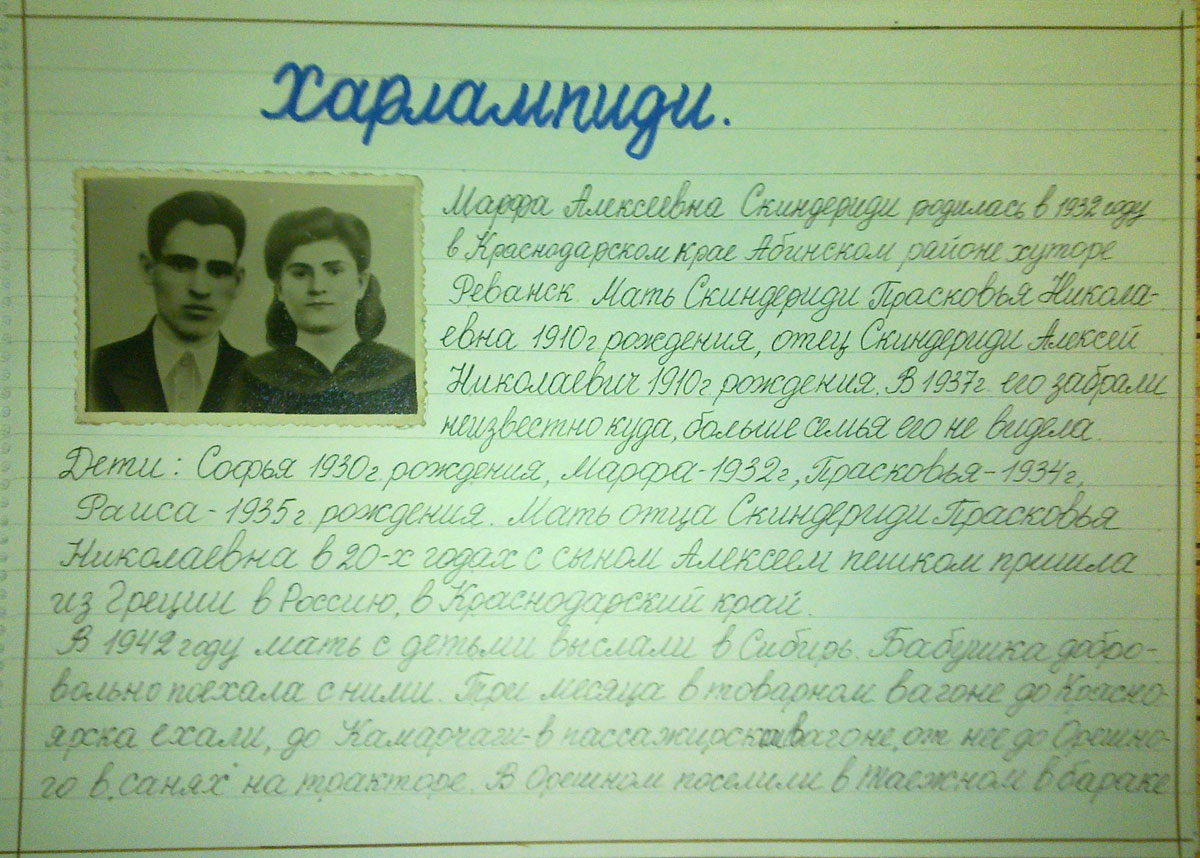 Харлампиди.
Марфа Алексеевна Скиндериди родилась в 1932 году
в Краснодарском крае Абинском районе хуторе
Реванск. Мать Скиндериди Прасковья Никола-
евна 1910г рождения, отец Скиндериди Алексей
Николаевич 1910г рождения. В 1937г. его забрали
неизвестно куда, больше семья его не видела.
Дети: Софья 1930г. рождения, Марфа-1932г, Прасковья-1934г,
Раиса-1935г. рождения. Мать отца Скиндериди Прасковья
Николаевна в 20-х годах с сыном Алексеем пешком пришла
из Греции в Россию, в Краснодарский край.
В 1942 году мать с детьми выслали в Сибирь. Бабушка добро-
вольно поехала с ними. Три месяца в товарном вагоне до Красно-
ярска ехали, до Камарчаги-в пассажирском вагоне, от нее до Орешно-
го в санях на тракторе. В Орешном поселили в таежном в бараке